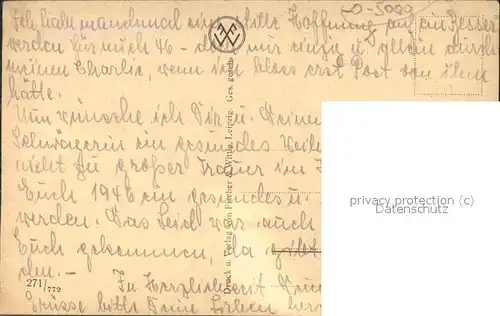 Ich habe manchmal eine stille Hoffnung auf ein Besser
werden für mich 46 - das mir einzig u. allein durch
meinen Charlie, wenn ich bloss erst Post von ihm
hätte.
Nun wünsche ich Dir u. Deiner
Schwägerin ein gesundes
nicht zu großer Trauer im
Euch 1946 ein gesundes u.
werden. Das Leid war auch
Euch gekommen, da
den. -
In Herzlichkeit
Grüsse bitte Deine Lieben
0-5000
Druck u. Verlag von Fischer & Wittig, Leipzig. Ges. gesch.
271/772
privacy protection (c)
Datenschutz